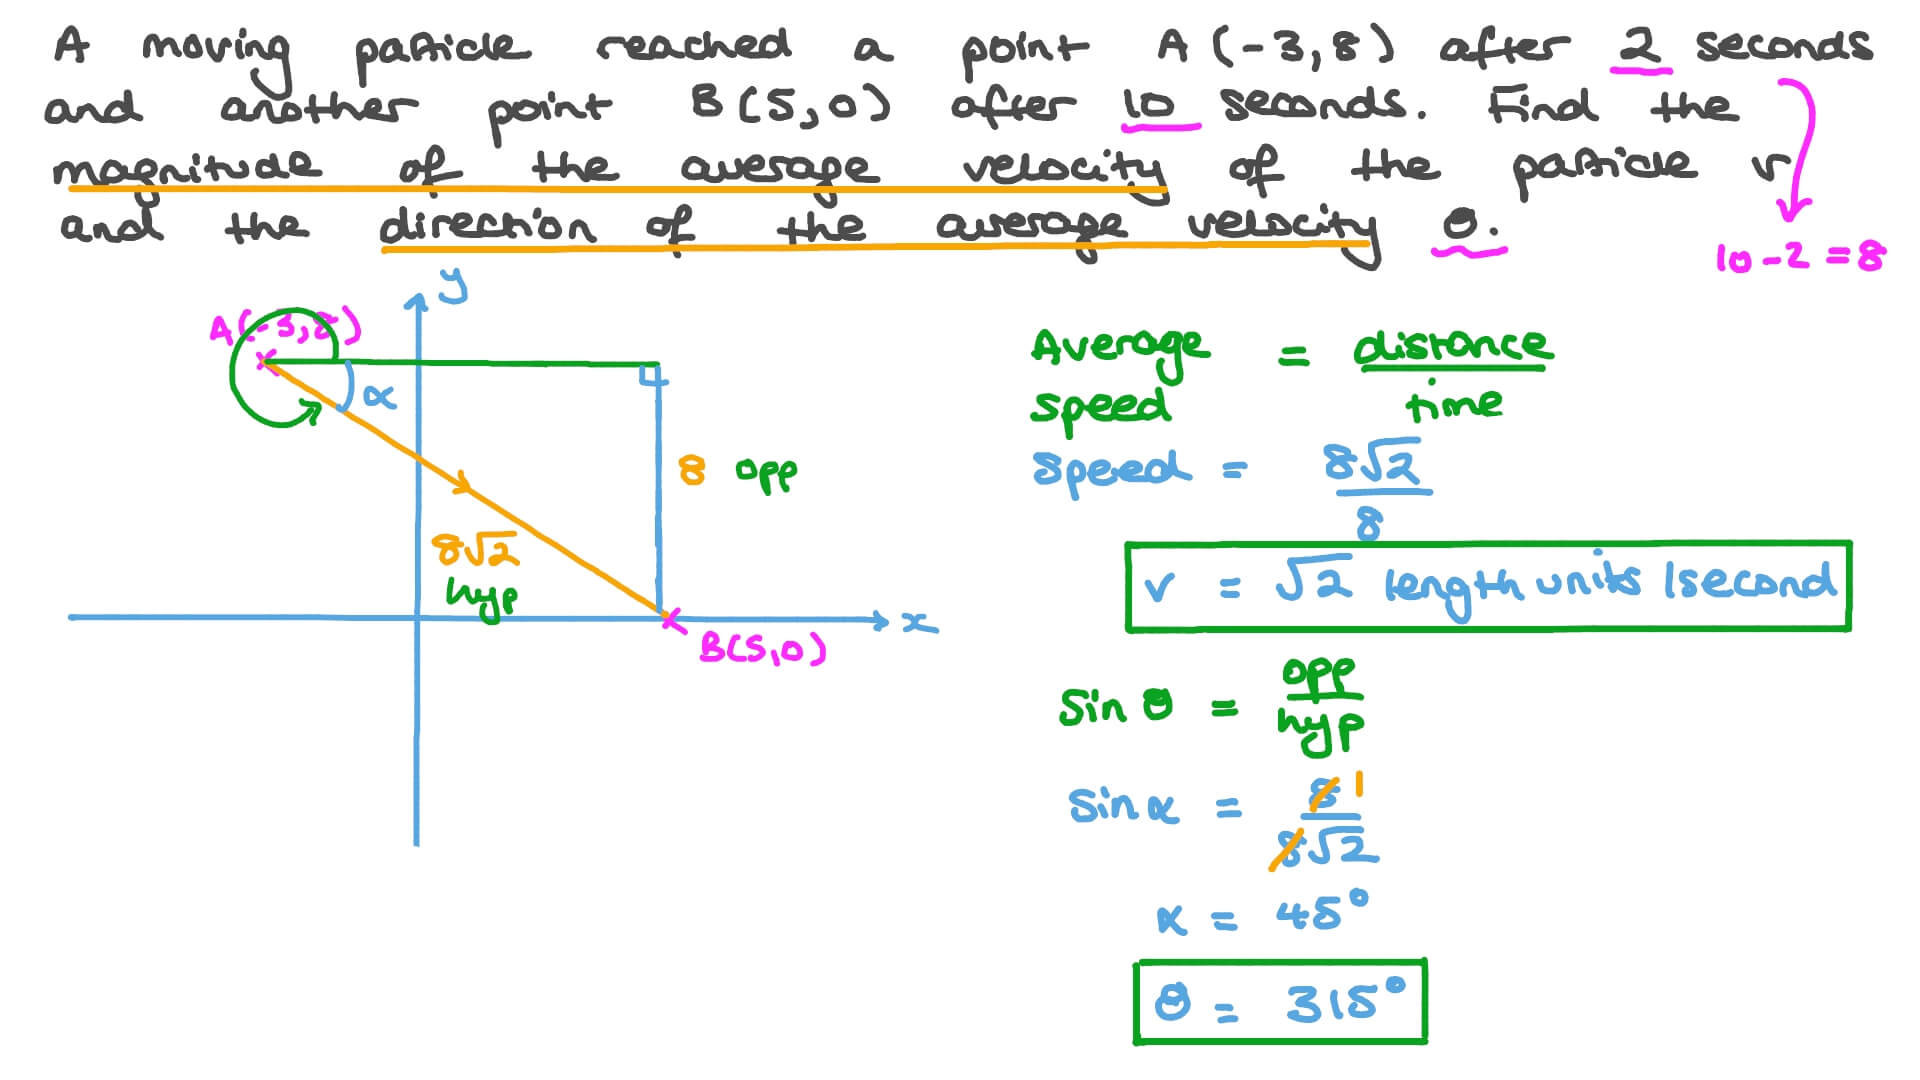 A moving particle reached a point A (-3,8) after 2 seconds
and another point B (5,0) after 10 seconds. Find the
magnitude of the average velocity of the particle v
and the direction of the average velocity θ.
10-2=8
y
A(-3,8)
α
8 opp
8√2
hyp
x
B(5,0)
Average speed = distance / time
speed = 8√2 / 8
v = √2 length units / second
sin θ = opp / hyp
sin α = 8 1 / 8√2
α = 45°
θ = 315°